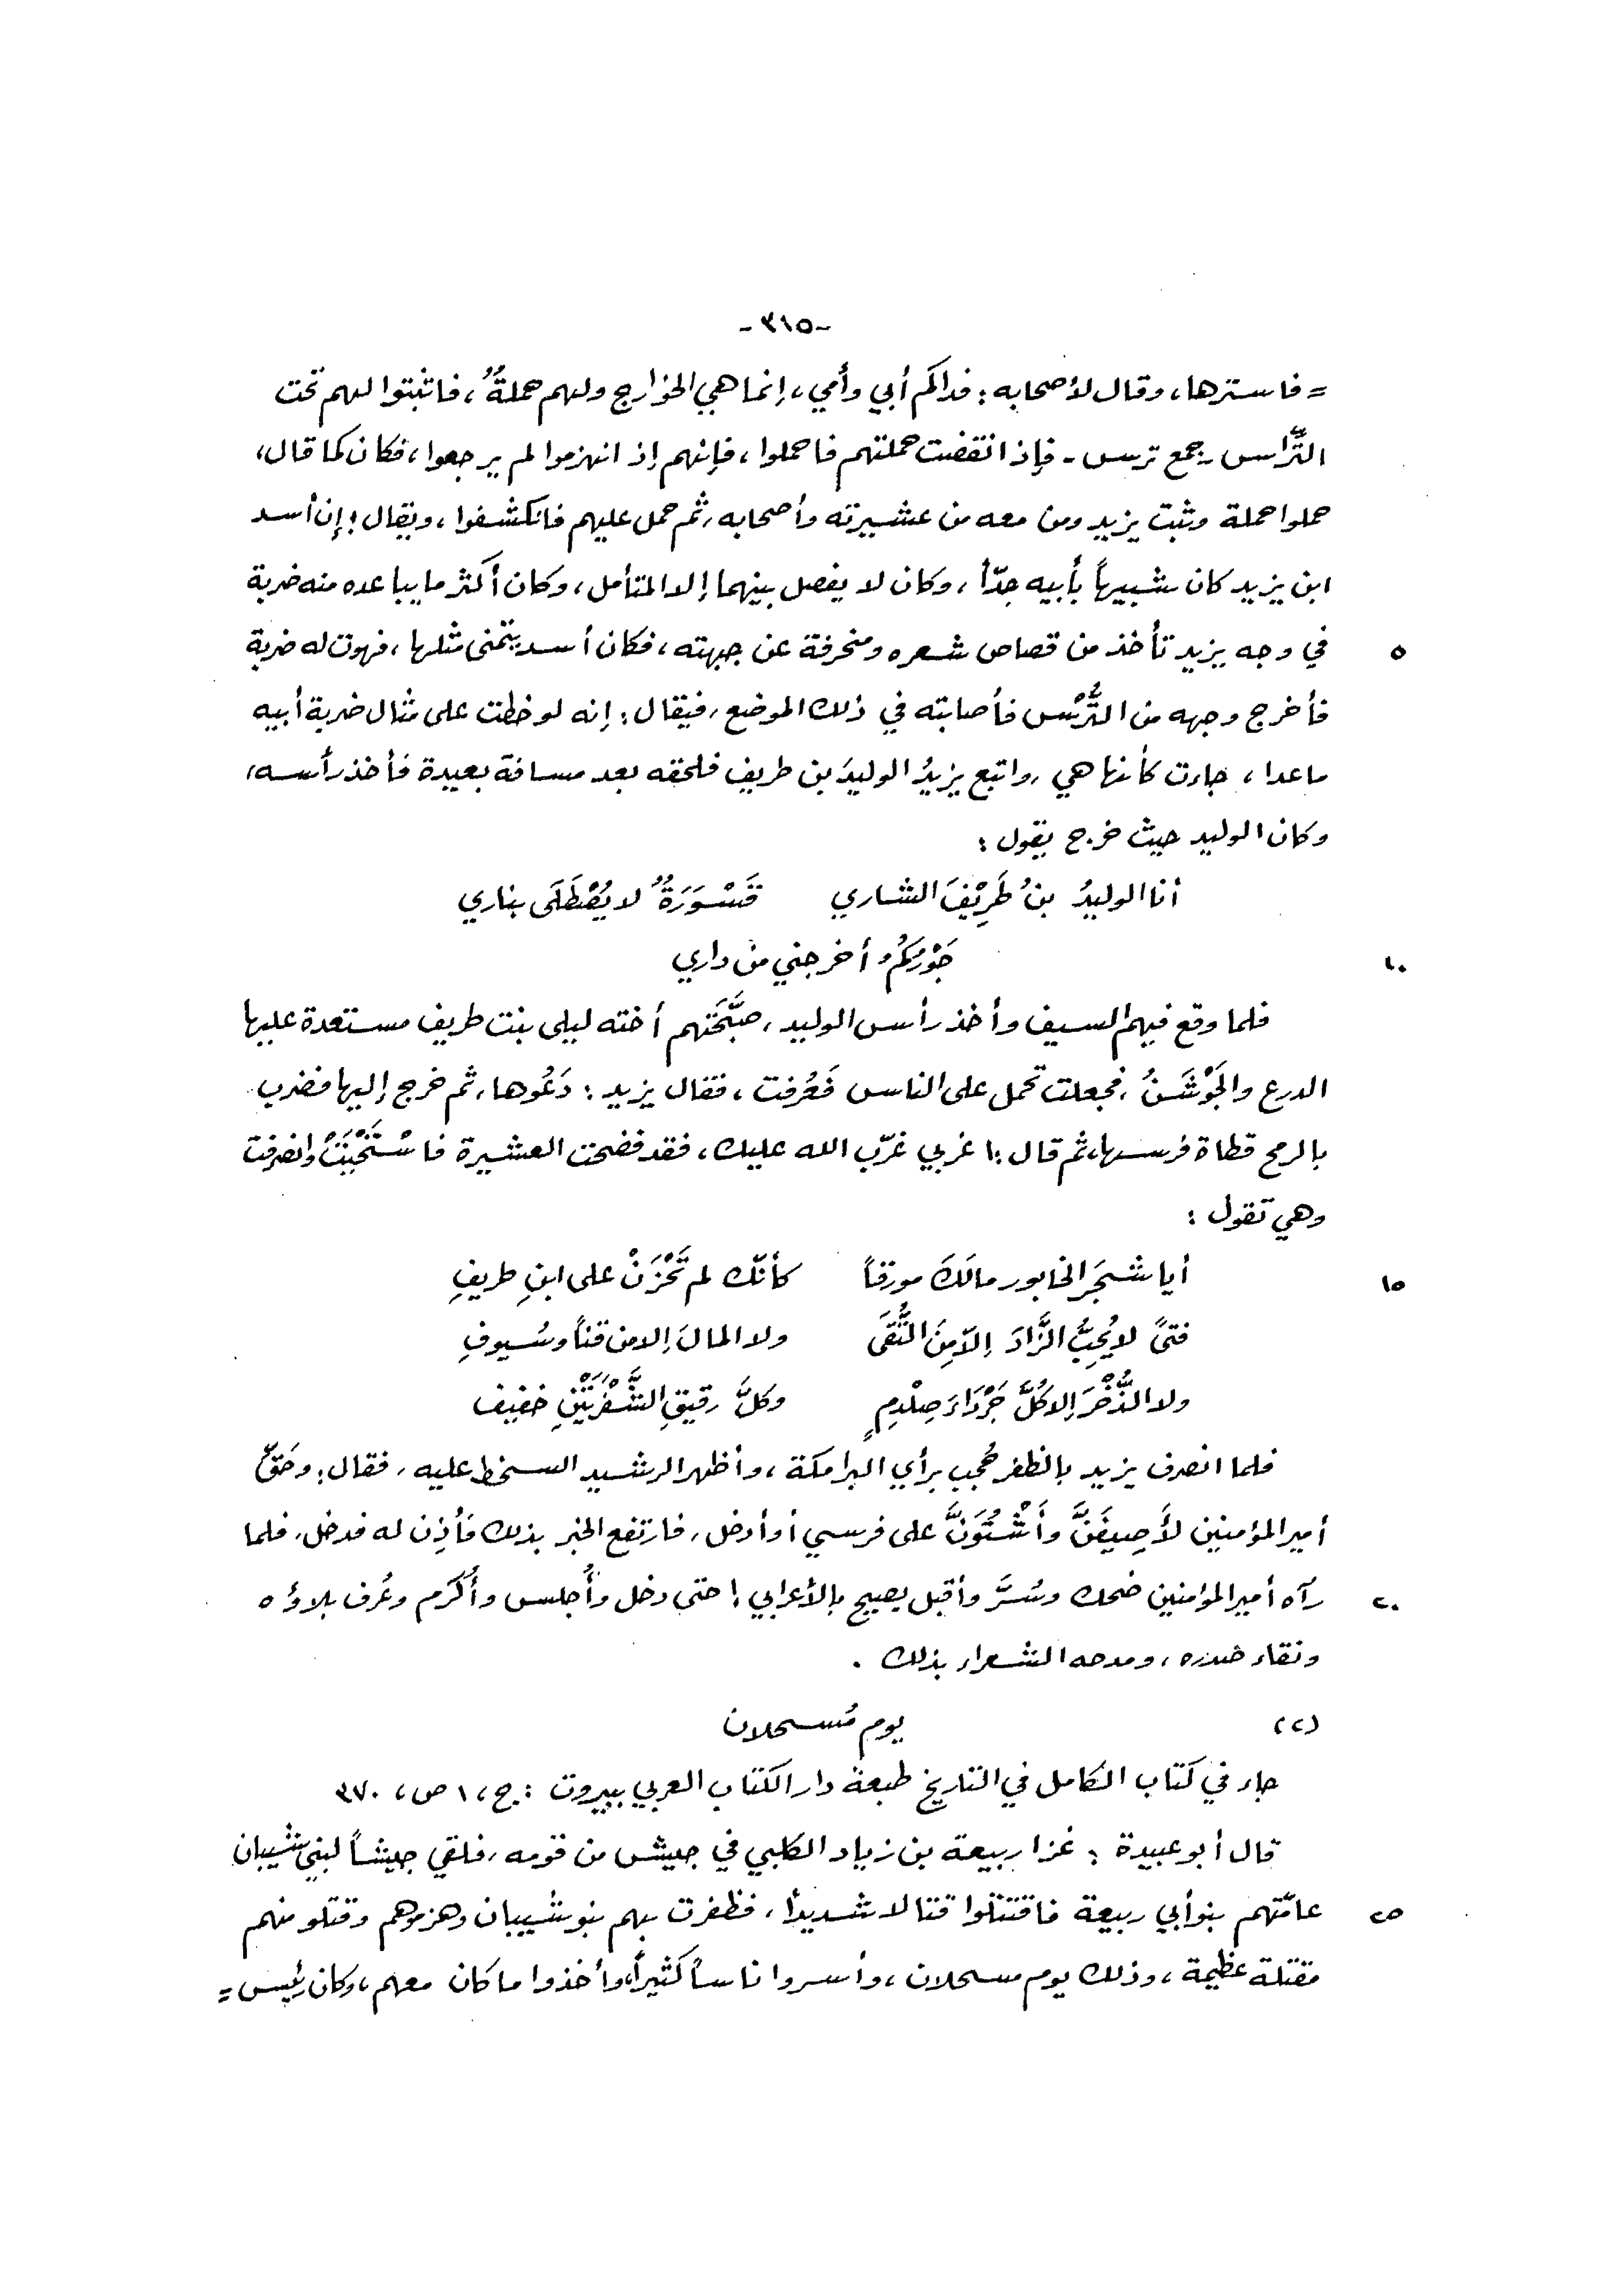 -٣١٥-
= فاسترها، وقال لأصحابه: فداكم أبي وأمي، إنما هي الخوارج ولهم حملةٌ، فاثبتوا لهم تحت
التِّراس -جمع ترس- فإذا انقضت حملتهم فاحملوا، فإنهم إذ انهزموا لم يرجعوا، فكان كما قال،
حملوا حملة وثبت يزيد ومن معه من عشيرته وأصحابه، ثم حمل عليهم فانكشفوا، ويقال: إن أسد
ابن يزيد كان شبيهاً بأبيه جدّاً، وكان لا يفصل بينهما إلا المتأمل، وكان أكثر ما يباعده منه ضربة
٥ في وجه يزيد تأخذ من قصاص شعره ومنحرفة عن جبهته، فكان أسد يتمنى مثلها، فهوت له ضربة
فأخرج وجهه من التُّرْس فأصابته في ذلك الموضع، فيقال: إنه لو خطت على مثال ضربة أبيه
ماعدا، جاءت كأنها هي، واتبع يزيدُ الوليدَ بن طريف فلحقه بعد مسافة بعيدة فأخذ رأسه،
وكان الوليد حيث خرج يقول:
أنا الوليدُ بنُ طَرِيْفَ الشاري قَسْوَرَةٌ لا يُصْطَلَى بناري
١٠ جَوْرُكُمُ أخرجني من داري
فلما وقع فيهم السيف وأخذ رأس الوليد، صبَّحَتهم أخته ليلى بنت طريف مستعدة عليها
الدرع والجَوْشَنُ، فجعلت تحمل على الناس فَعُرفت، فقال يزيد: دَعُوها، ثم خرج إليها فضرب
بالرمح قطاة فرسها، ثم قال: اغربي غرّب الله عليك، فقد فضحت العشيرة فاسْتَحْيَتْ وانصرفت
وهي تقول:
١٥ أيا شجَر الخابور مالَكَ مورقاً كأنّك لم تَحْزَنْ على ابنِ طريفِ
فتىً لا يُحِبُّ الزَّادَ إلاّ مِنَ التُّقَى ولا المالَ إلا من قناً وسُيوفِ
ولا الذُّخْرَ إلا كُلَّ جَرْدَاءَ صِلْدِمٍ وكلَّ رقيقِ الشَّفْرَتَيْنِ خفيف
فلما انصرف يزيد بالظفر حُجب برأي البرامكة، وأظهر الرشيد السخط عليه، فقال: وحَقِّ
أمير المؤمنين لأَصِيفَنَّ وأَشْتُوَنَّ على فرسي أو أدخل، فارتفع الخبر بذلك فأُذِن له فدخل، فلما
٢٠ رآه أمير المؤمنين ضحك وسُرَّ وأقبل يصيح بالأعرابي! حتى دخل وأُجلس وأُكرم وعُرف بلاؤه
ونقاء صدره، ومدحه الشعراء بذلك.
(٢) يوم مُسحلان
جاء في كتاب الكامل في التاريخ طبعة دار الكتاب العربي ببيروت: ج، ١ ص، ٣٧٠
قال أبو عبيدة: غزا ربيعة بن زياد الكلبي في جيش من قومه، فلقي جيشاً لبني شيبان
٢٥ عامّتهم بنو أبي ربيعة فاقتتلوا قتالا شديداً، فظفرت بهم بنو شيبان وهزموهم وقتلو منهم
مقتلة عظيمة، وذلك يوم مسحلان، وأسروا ناساً كثيراً، وأخذوا ما كان معهم، وكان رئيس =